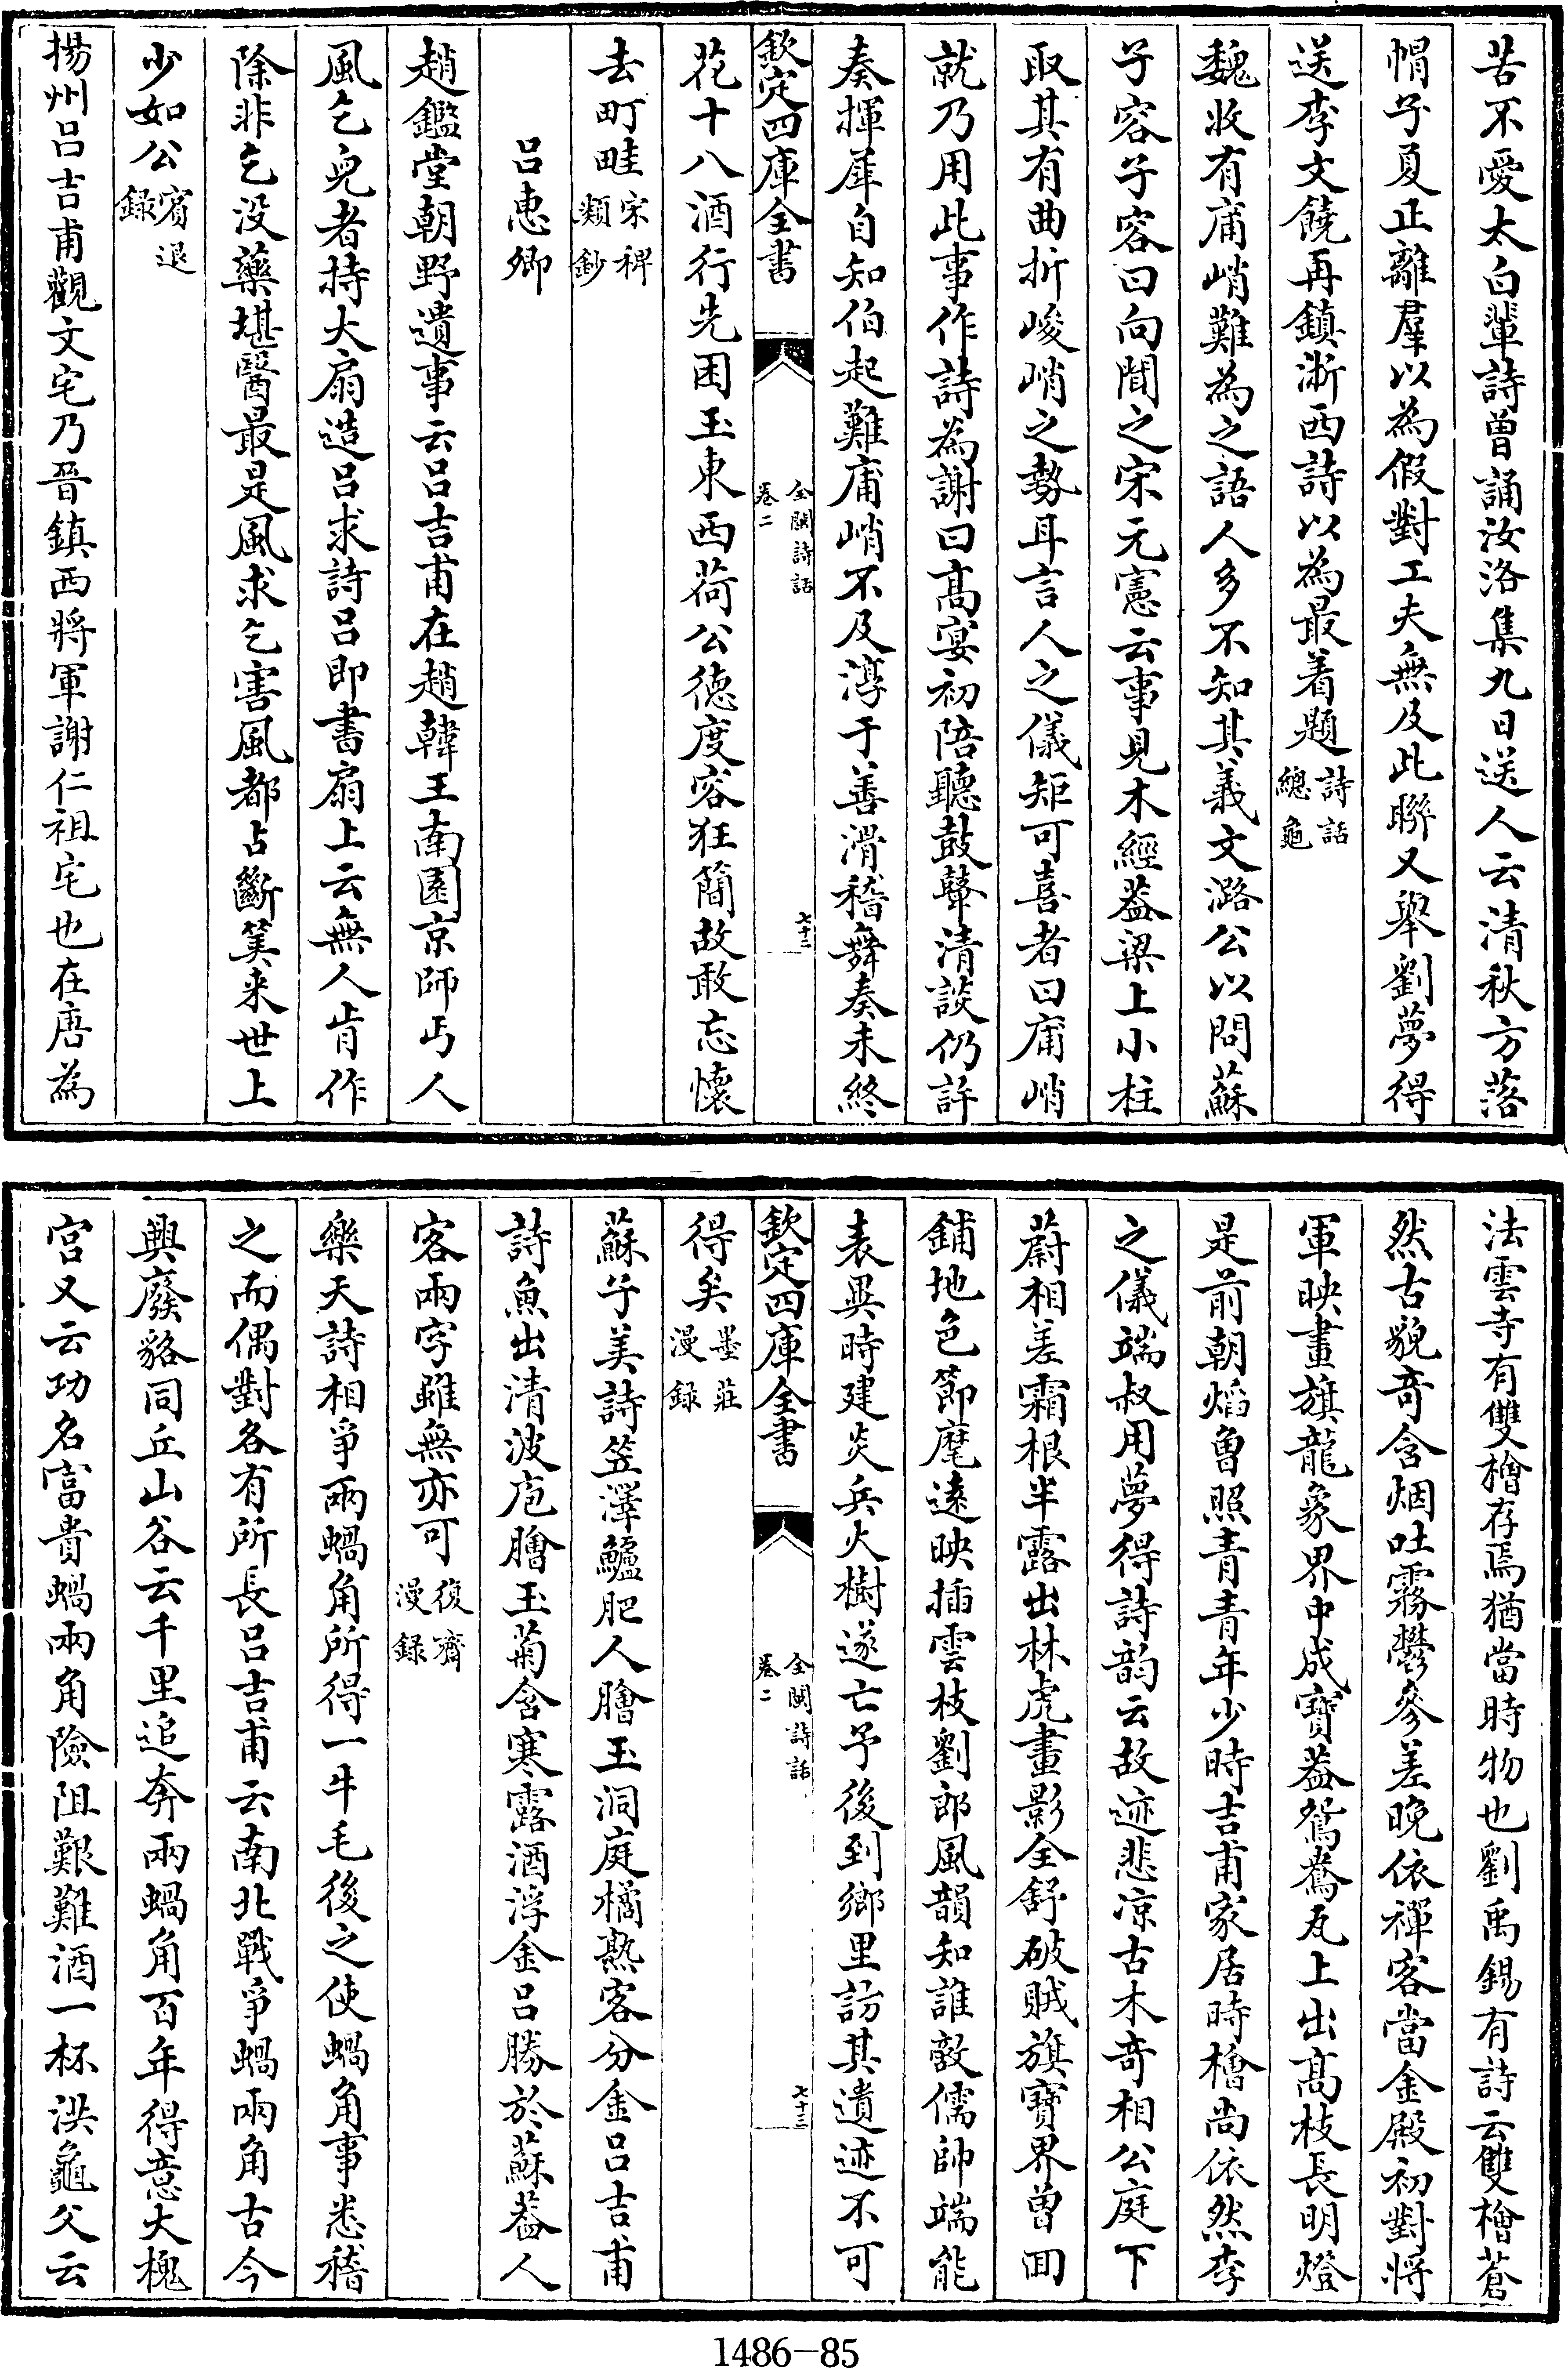 苦不愛太白輩詩曽誦汝洛集九日送人云清秋方落
㡌子夏正離羣以為假對工夫無及此聨又舉劉夢得
送李文饒再鎮浙西詩以為最着題詩話總龜
魏收有庯峭難為之語人多不知其義文潞公以問蘇
子容子容曰向聞之宋元憲云事見木經葢梁上小柱
取其有曲折峻峭之勢耳言人之儀矩可喜者曰庯峭
就乃用此事作詩為謝曰髙宴初陪聽鼓鼙清談仍許
奏揮犀自知伯起難庯峭不及淳于善滑稽舞奏未終
欽定四庫全書
全閩詩話
卷二
七十三
花十八酒行先困玉東西荷公徳度容狂簡故敢忘懷
去町畦宋稗類鈔
吕惠卿
趙鑑堂朝野遺事云吕吉甫在趙韓王南園京師丐人
風乞兒者持大扇造吕求詩吕即書扇上云無人肯作
除非乞没藥堪醫最是風求乞害風都占斷筭来世上
少如公賓退録
揚州吕吉甫觀文宅乃晉鎮西將軍謝仁祖宅也在唐為
法雲寺有雙檜存焉猶當時物也劉禹錫有詩云雙檜蒼
然古貌竒含烟吐霧鬱參差晚依禪客當金殿初對將
軍映畫旗龍象界中成寳葢鴛鴦瓦上出髙枝長明燈
是前朝焰曽照青青年少時吉甫家居時檜尚依然李
之儀端叔用夢得詩韵云故迹悲凉古木竒相公庭下
蔚相差霜根半露出林虎畫影全舒破賊旗寳界曽回
鋪地色節麾遠映插雲枝劉郎風韻知誰敵儒帥端能
表異時建炎兵火樹遂亡予後到鄉里訪其遺迹不可
欽定四庫全書
全閩詩話
卷二
七十三
得矣墨莊漫録
蘇子美詩笠澤鱸肥人膾玉洞庭橘熟客分金吕吉甫
詩魚出清波庖膾玉菊含寒露酒浮金吕勝於蘇葢人
客兩字雖無亦可復齋漫録
樂天詩相爭兩蝸角所得一牛毛後之使蝸角事悉稽
之而偶對各有所長吕吉甫云南北戰爭蝸兩角古今
興廢貉同丘山谷云千里追奔兩蝸角百年得意大槐
宫又云功名富貴蝸兩角險阻艱難酒一杯洪龜父云
1486-85